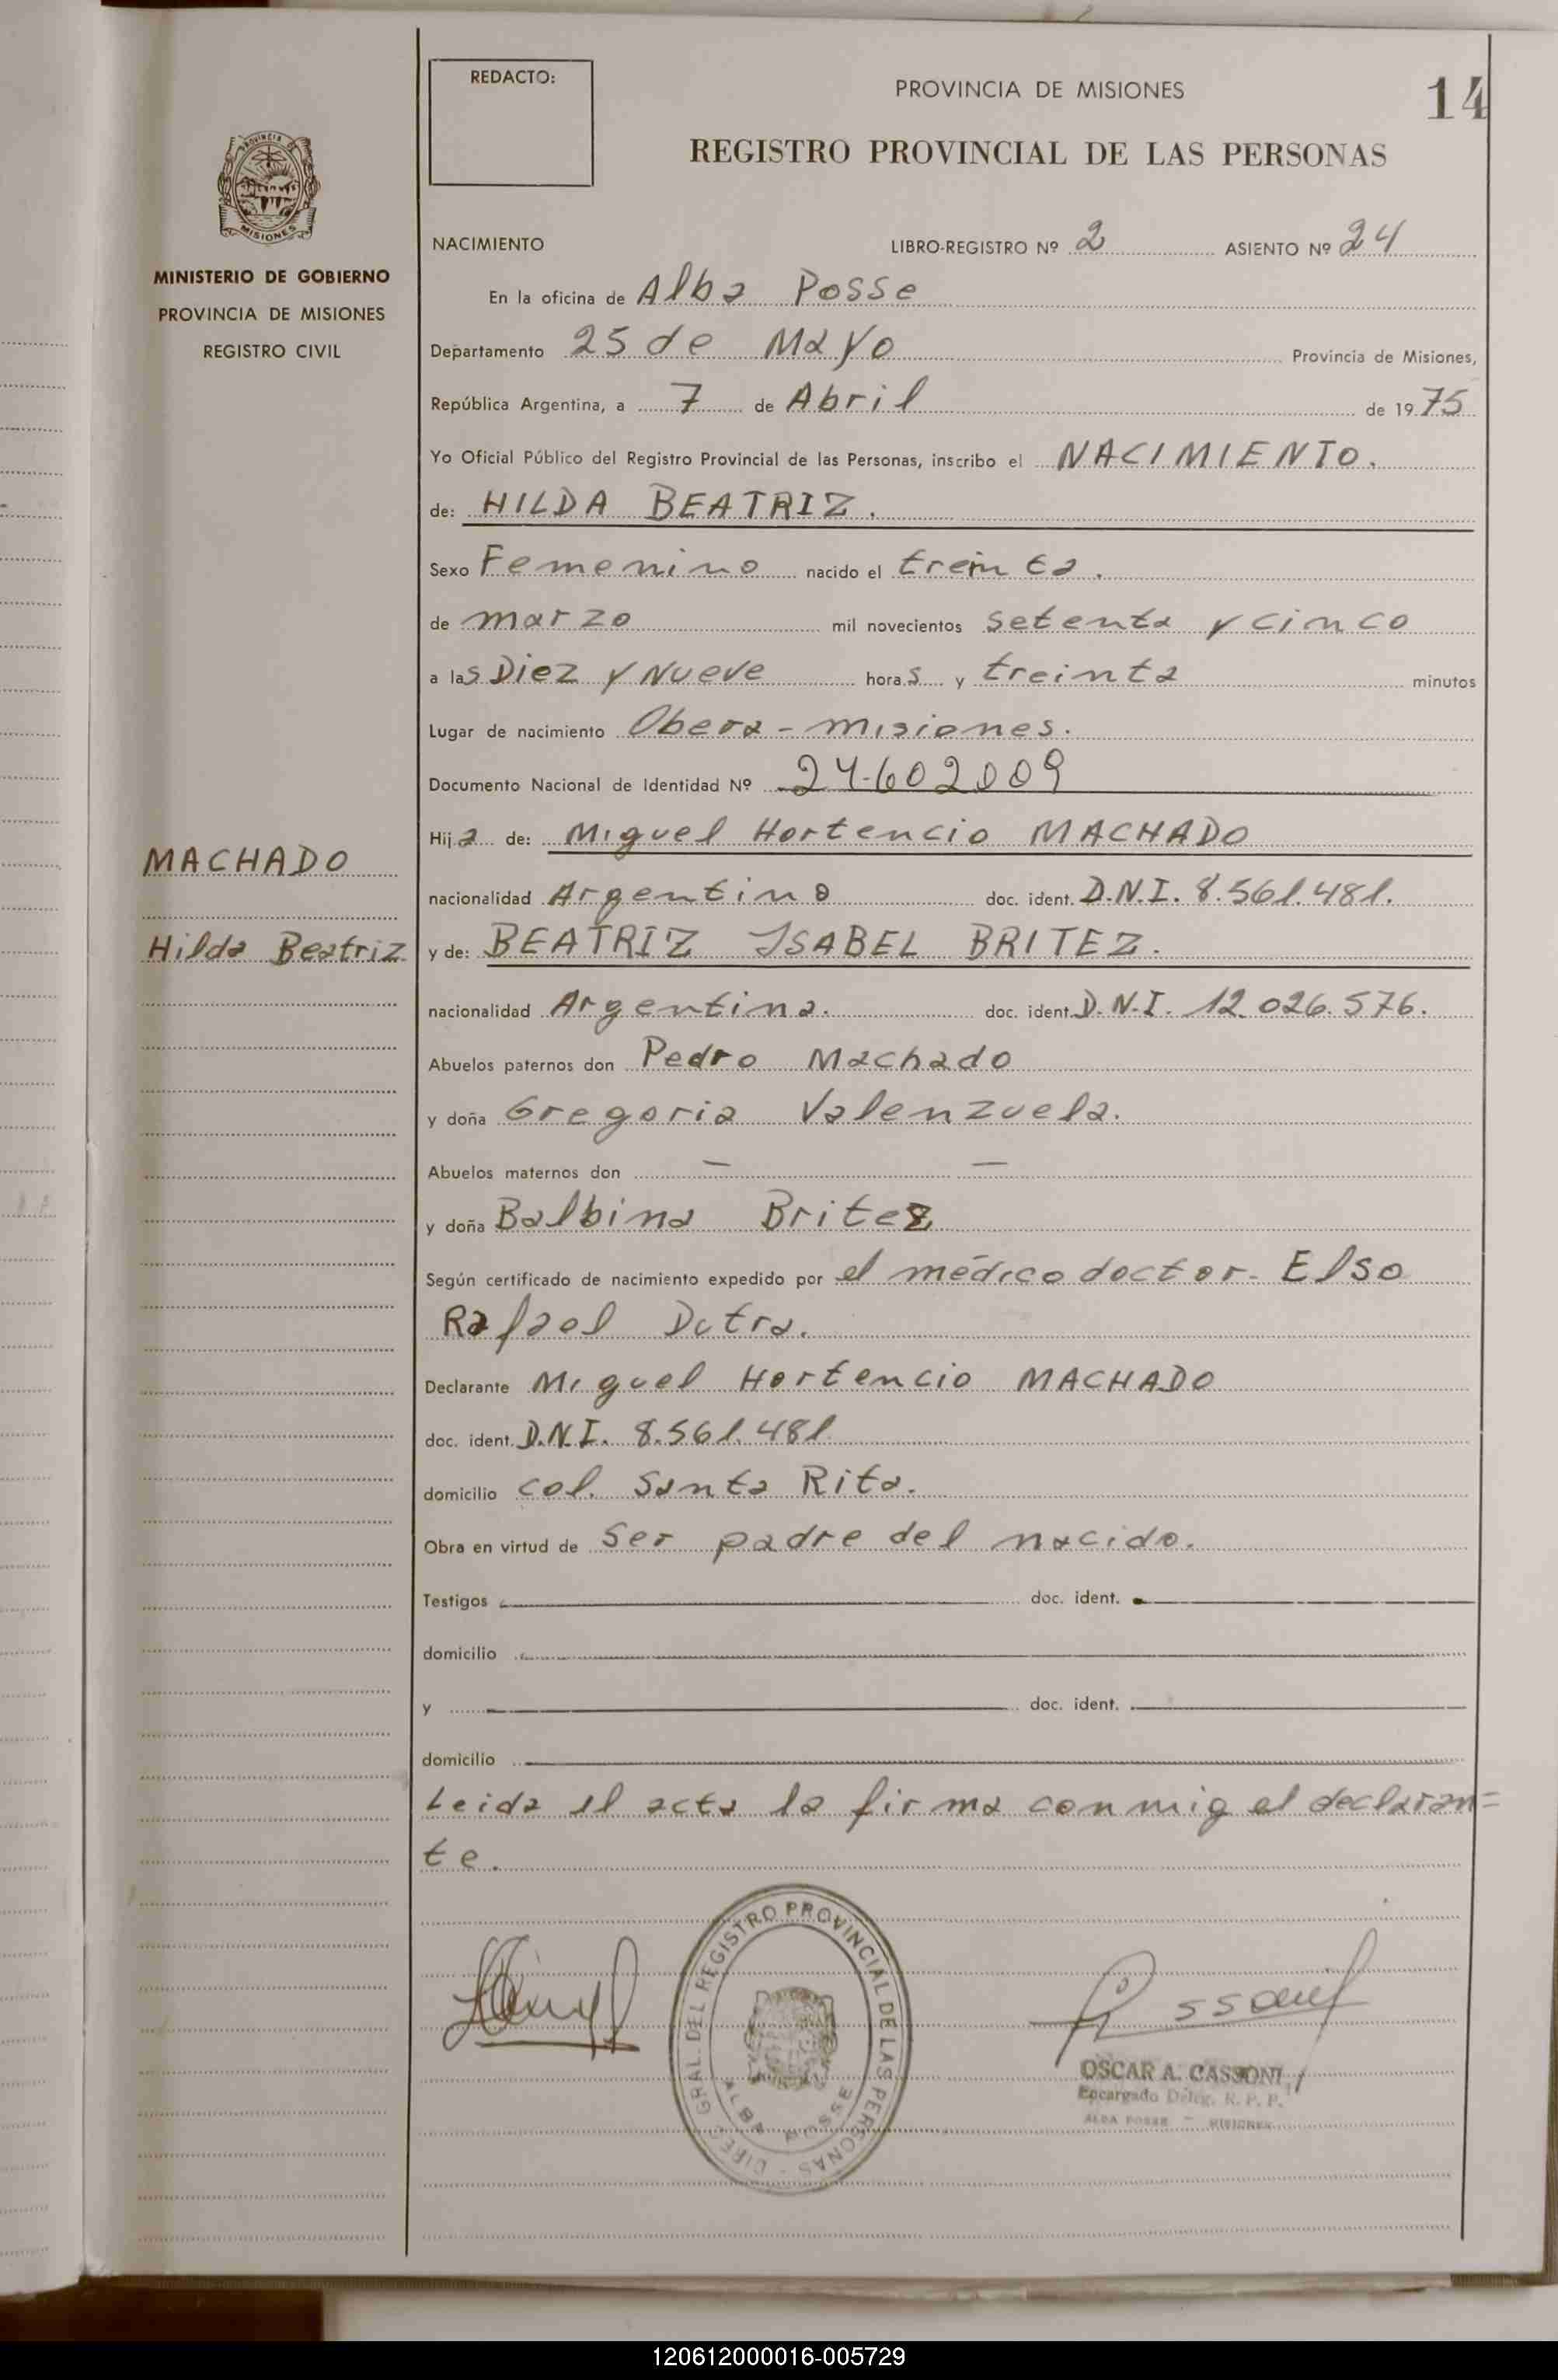 REDACTO:
PROVINCIA DE MISIONES
14
REGISTRO PROVINCIAL DE LAS PERSONAS
PROVINCIA DE
MISIONES
MINISTERIO DE GOBIERNO
PROVINCIA DE MISIONES
REGISTRO CIVIL
NACIMIENTO LIBRO-REGISTRO Nº 2 ASIENTO Nº 24
En la oficina de Alba Posse
Departamento 25 de Mayo Provincia de Misiones,
República Argentina, a 7 de Abril de 1975
Yo Oficial Público del Registro Provincial de las Personas, inscribo el NACIMIENTO.
de: HILDA BEATRIZ.
Sexo Femenino nacido el treinta.
de marzo mil novecientos setenta y cinco
a las Diez y Nueve horas y treinta minutos
Lugar de nacimiento Obera - misiones.
Documento Nacional de Identidad Nº 24-602009
Hija de: Miguel Hortencio MACHADO
MACHADO
nacionalidad Argentino doc. ident. D.N.I. 8.561.481.
Hilda Beatriz
y de: BEATRIZ ISABEL BRITEZ.
nacionalidad Argentina. doc. ident. D.N.I. 12.026.576.
Abuelos paternos don Pedro Machado
y doña Gregoria Valenzuela.
Abuelos maternos don — —
y doña Balbina Britez
Según certificado de nacimiento expedido por el médico doctor - Elso
Rafael Dutra.
Declarante Miguel Hortencio MACHADO
doc. ident. D.N.I. 8.561.481
domicilio col. Santa Rita.
Obra en virtud de Ser padre del nacido.
Testigos doc. ident.
domicilio
y doc. ident.
domicilio
Leida el acta la firma conmig el declaran=
te.
DIREC. GRAL. DEL REGISTRO PROVINCIAL DE LAS PERSONAS -
ALBA POSSE
OSCAR A. CASSONI
Encargado Deleg. R. P. P.
ALBA POSSE - MISIONES
120612000016-005729